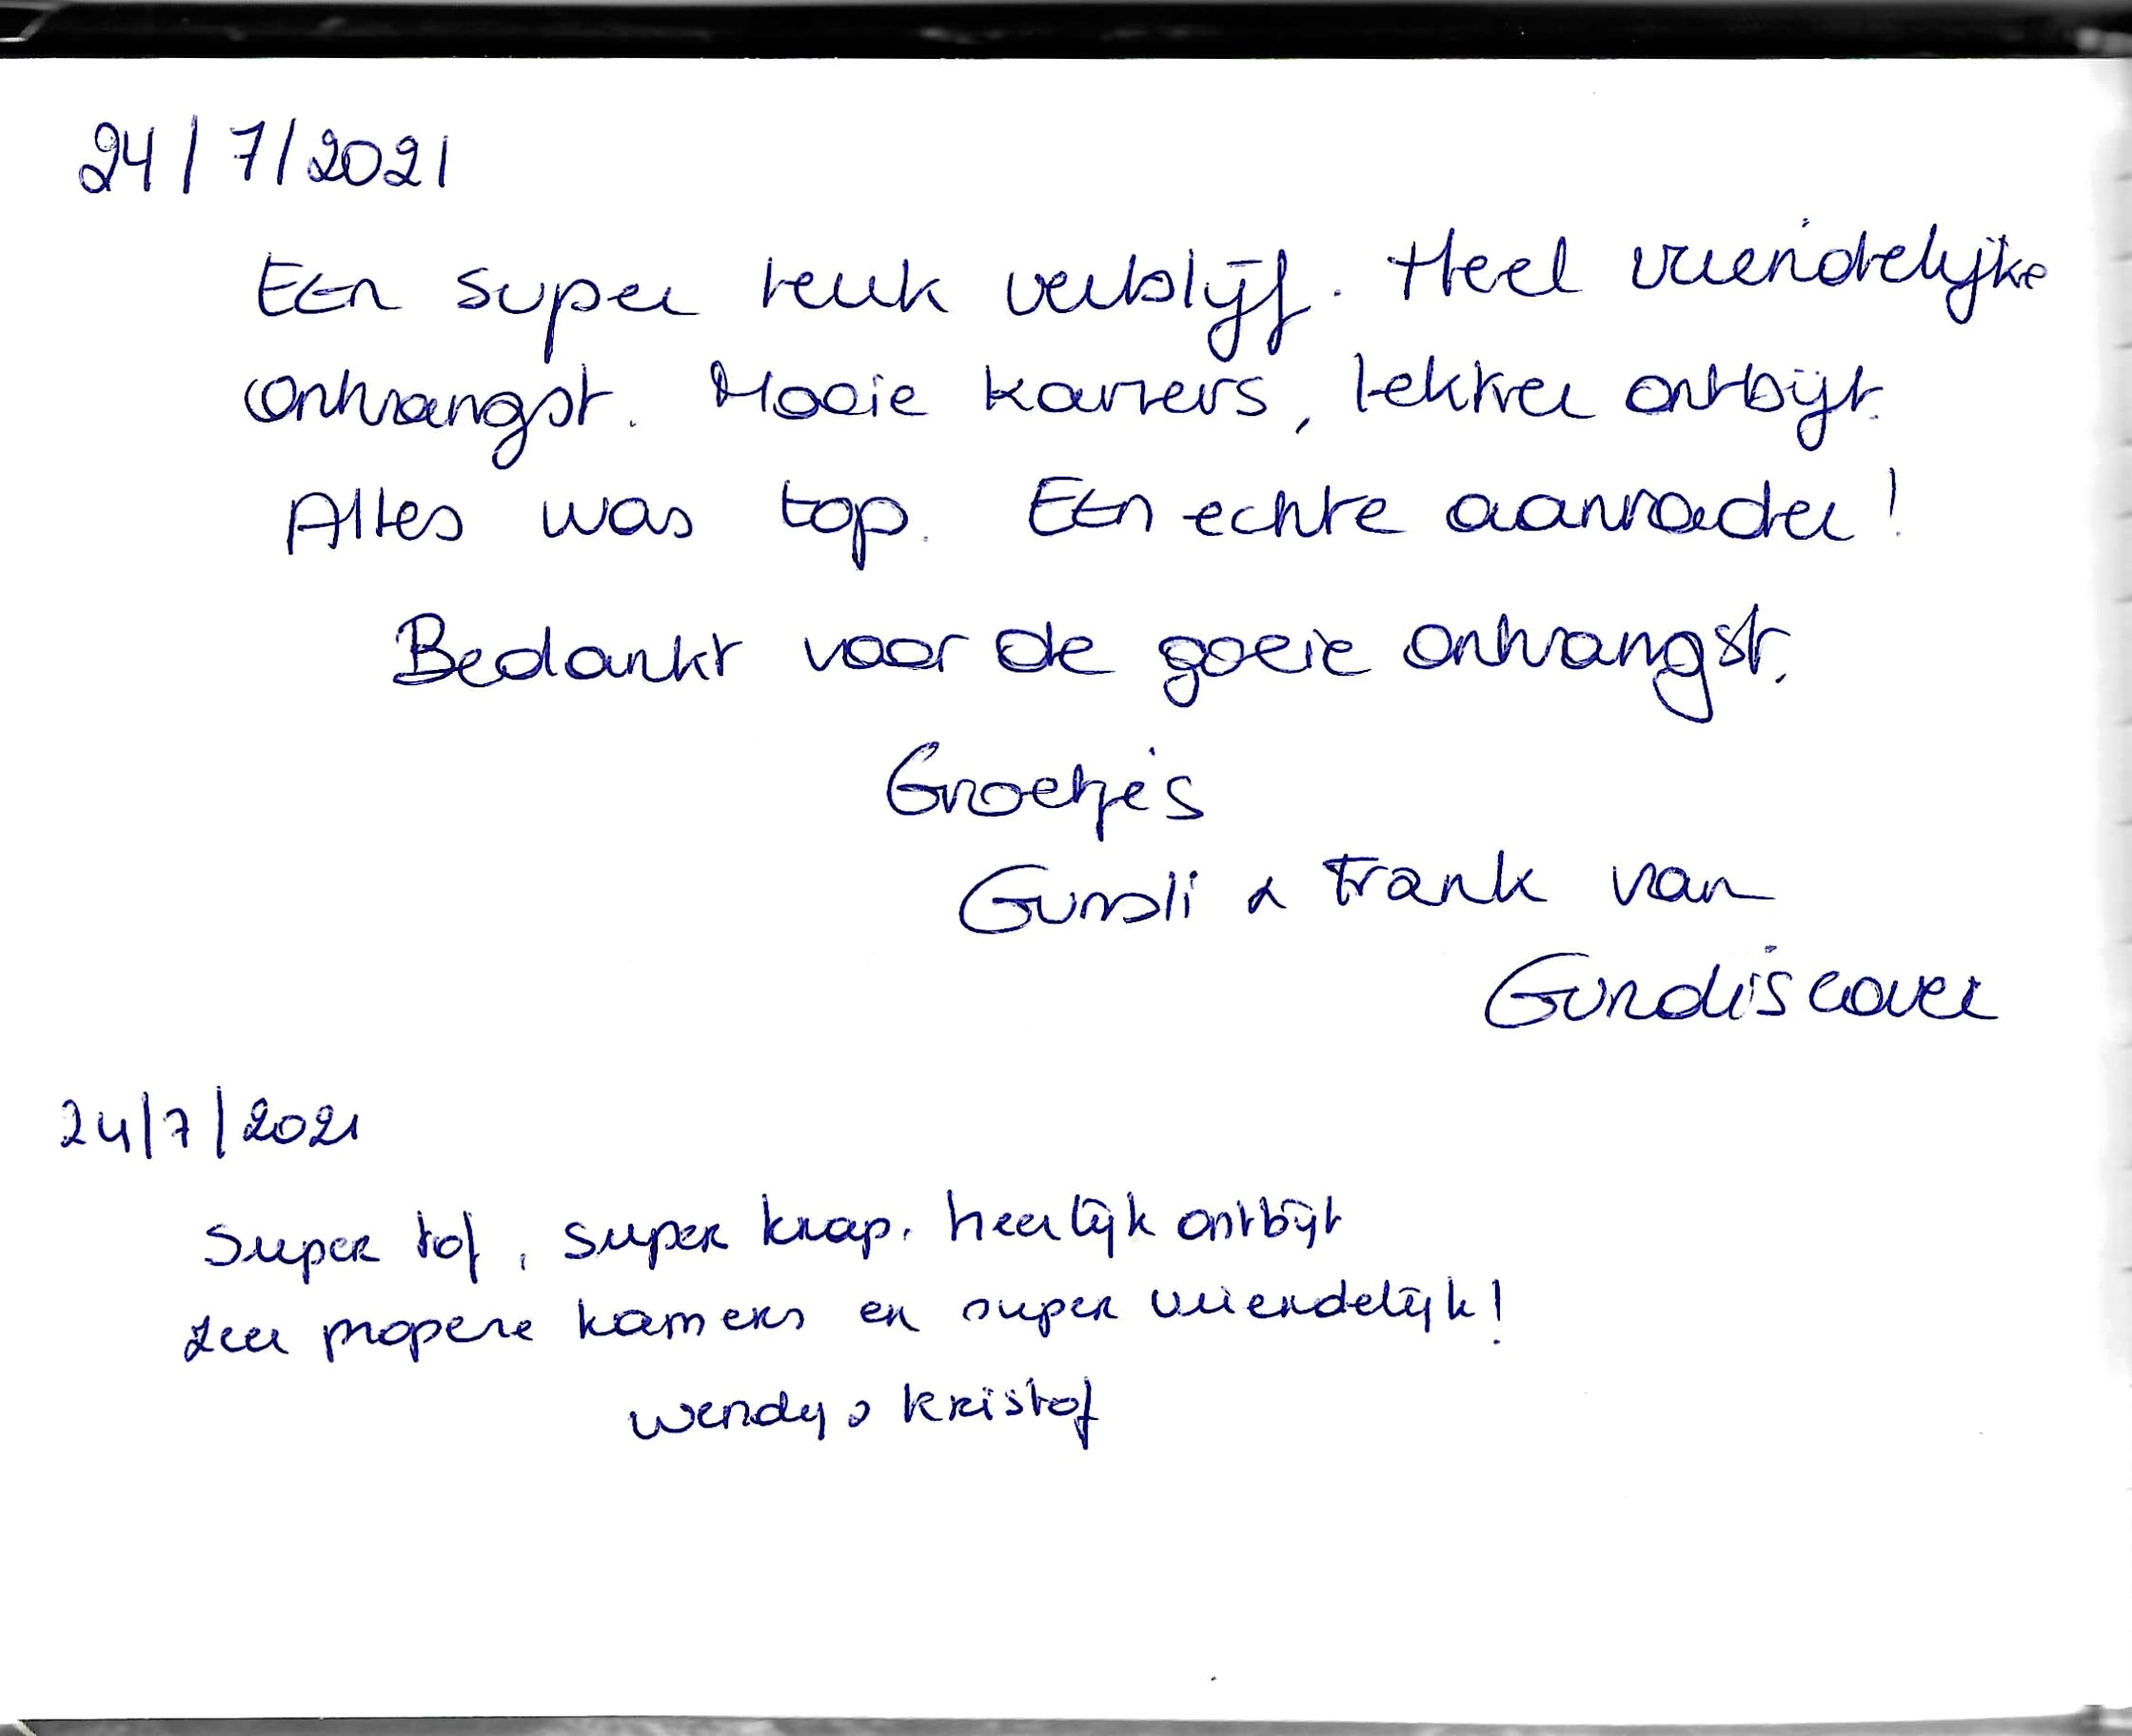 24/7/2021
Een super leuk verblijf. Heel vriendelijke
ontvangst. Mooie kamers, lekker ontbijt.
Alles was top. Een echte aanrader!
Bedankt voor de goeie ontvangst.
Groetjes
Gundi & Frank van
Gundiscover
24/7/2021
Super tof, super knap. heerlijk ontbijt
zeer propere kamers en super vriendelijk!
Wendy & Kristof